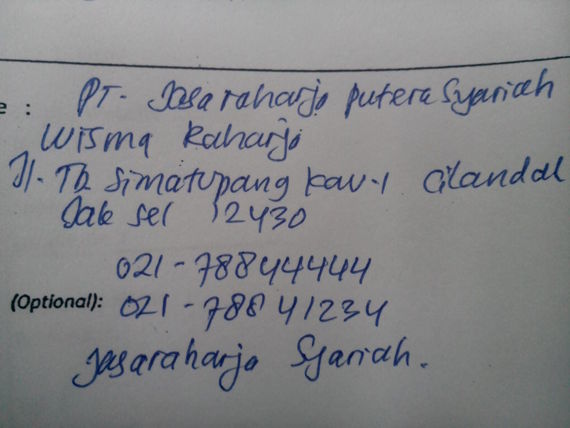 e :
PT. Jasaraharja putera Syariah
Wisma Raharja
Jl. TB. Simatupang kav.1 Cilandak
Jak sel 12430
021-78844444
(Optional): 021-78841234
Jasaraharja Syariah.